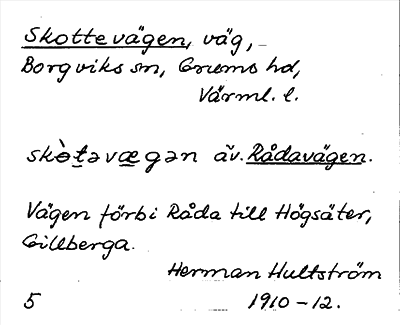 Skottevägen, väg,
Borgviks sn, Grums hd,
Värml. l.
skòt̲əvægən äv. Rådavägen.
Vägen förbi Råda till Högsäter,
Gillberga.
Herman Hultström
5 1910-12.